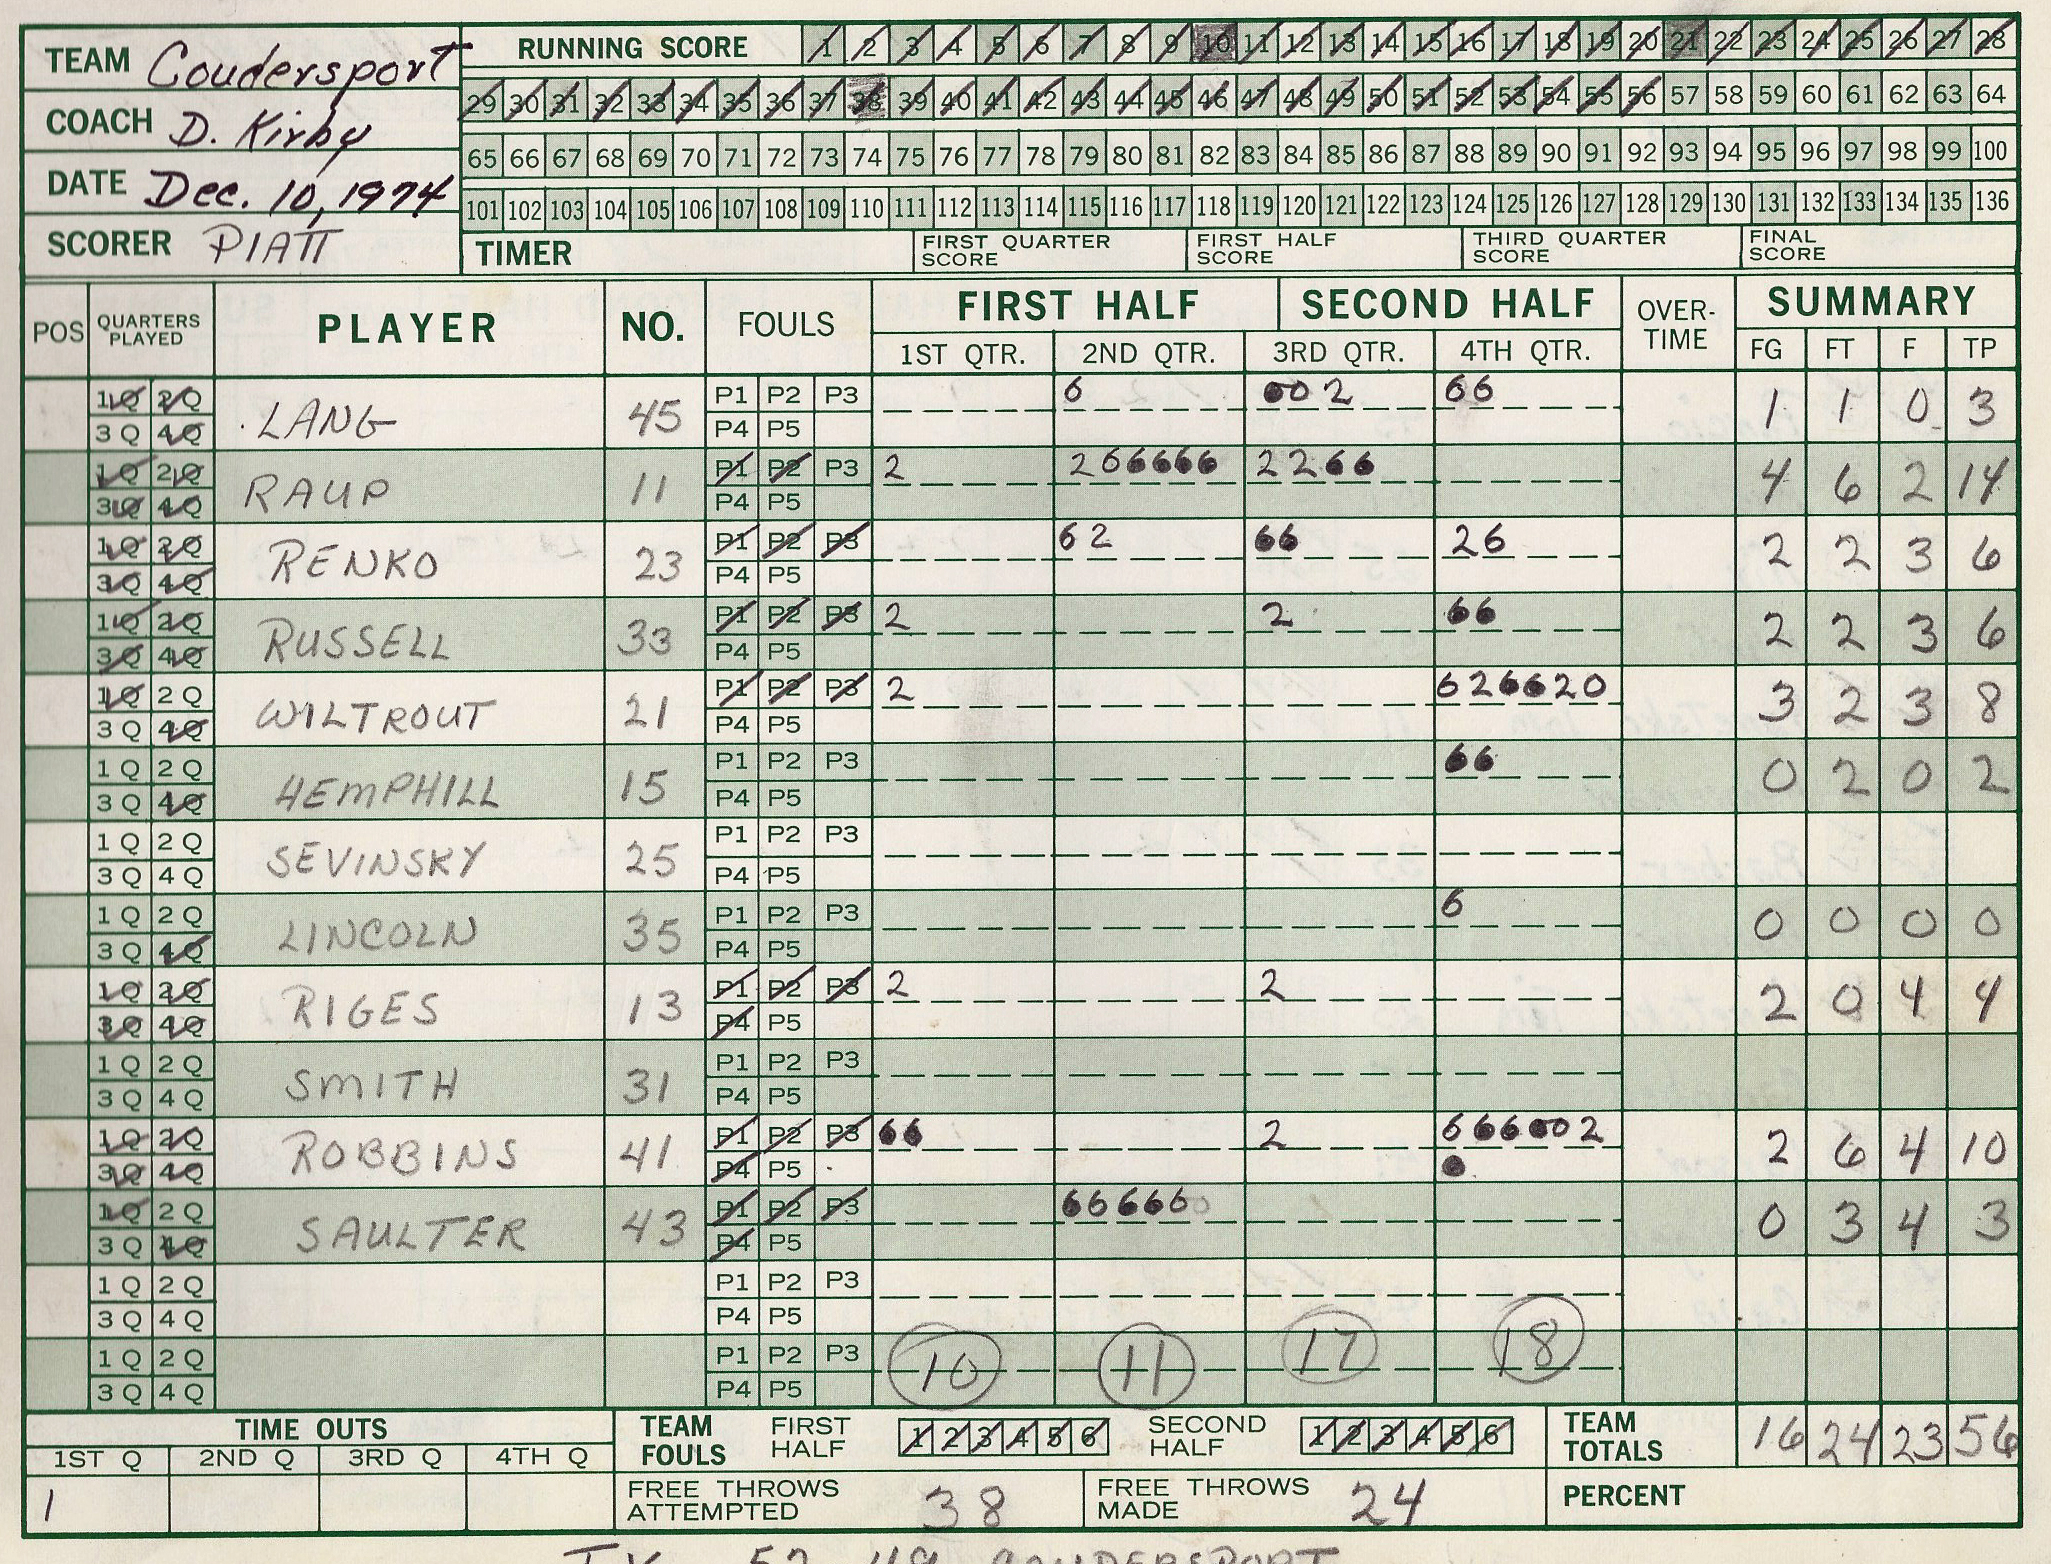 TEAM Coudersport
COACH D. Kirby
DATE Dec. 10, 1974
SCORER PIATT
RUNNING SCORE 1 2 3 4 5 6 7 8 9 10 11 12 13 14 15 16 17 18 19 20 21 22 23 24 25 26 27 28
29 30 31 32 33 34 35 36 37 38 39 40 41 42 43 44 45 46 47 48 49 50 51 52 53 54 55 56 57 58 59 60 61 62 63 64
65 66 67 68 69 70 71 72 73 74 75 76 77 78 79 80 81 82 83 84 85 86 87 88 89 90 91 92 93 94 95 96 97 98 99 100
101 102 103 104 105 106 107 108 109 110 111 112 113 114 115 116 117 118 119 120 121 122 123 124 125 126 127 128 129 130 131 132 133 134 135 136
TIMER FIRST QUARTER SCORE FIRST HALF SCORE THIRD QUARTER SCORE FINAL SCORE
POS QUARTERS PLAYED PLAYER NO. FOULS FIRST HALF SECOND HALF OVER-TIME SUMMARY
1ST QTR. 2ND QTR. 3RD QTR. 4TH QTR. FG FT F TP
1Q 2Q LANG 45 P1 P2 P3 6 002 66 1 1 0 3
3Q 4Q P4 P5
1Q 2Q RAUP 11 P1 P2 P3 2 2666666 2266 4 6 2 14
3Q 4Q P4 P5
1Q 2Q RENKO 23 P1 P2 P3 62 66 26 2 2 3 6
3Q 4Q P4 P5
1Q 2Q RUSSELL 33 P1 P2 P3 2 2 66 2 2 3 6
3Q 4Q P4 P5
1Q 2Q WILTROUT 21 P1 P2 P3 2 6266620 3 2 3 8
3Q 4Q P4 P5
1Q 2Q HEMPHILL 15 P1 P2 P3 66 0 2 0 2
3Q 4Q P4 P5
1Q 2Q SEVINSKY 25 P1 P2 P3
3Q 4Q P4 P5
1Q 2Q LINCOLN 35 P1 P2 P3 6 0 0 0 0
3Q 4Q P4 P5
1Q 2Q RIGES 13 P1 P2 P3 2 2 2 0 4 4
3Q 4Q P4 P5
1Q 2Q SMITH 31 P1 P2 P3
3Q 4Q P4 P5
1Q 2Q ROBBINS 41 P1 P2 P3 66 2 666002 2 6 4 10
3Q 4Q P4 P5
1Q 2Q SAULTER 43 P1 P2 P3 666660 0 3 4 3
3Q 4Q P4 P5
1Q 2Q P1 P2 P3
3Q 4Q P4 P5
1Q 2Q P1 P2 P3 10 11 17 18
3Q 4Q P4 P5
TIME OUTS TEAM FOULS FIRST HALF 1 2 3 4 5 6 SECOND HALF 1 2 3 4 5 6 TEAM TOTALS 16 24 23 56
1ST Q 2ND Q 3RD Q 4TH Q
1 FREE THROWS ATTEMPTED 38 FREE THROWS MADE 24 PERCENT